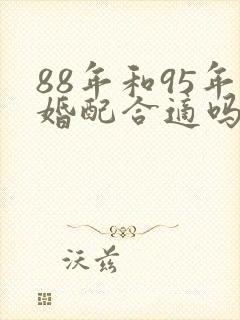 88年和95年
婚配合适吗
沃兹